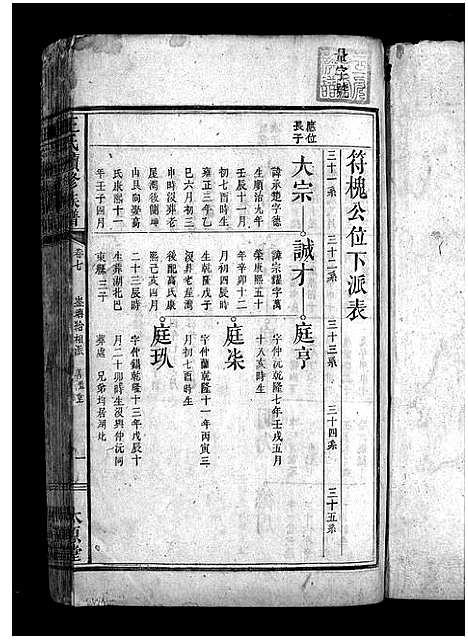 符槐公位下派表
三十一系 三十二系 三十三系 三十四系 三十五系
應位長子
大宗 誠才 庭亨
諱承楚字德
生順治九年
壬辰十一月
初七酉時生
雍正三年乙
巳六月初三
申時沒葬老
屋灣後園坤
山艮向娶葛
氏康熙十一
年壬子四月
諱宗耀字萬
榮康熙五十
年辛卯十二
月初四辰時
生乾隆戊子
沒葬老屋灣
後配高氏康
熙己亥四月
二十三辰時
生葬湖北巴
東縣三子
字仲沅乾隆七年壬戌五月
十八亥時生
庭柒
字仲蘭乾隆十一年丙寅三
月初七酉時生
庭玖
字仲鎮乾隆十三年戊辰十
月二十卯時生沒與仲沅同
葬處 兄弟均居湖北
王氏續修族譜
卷七
一
太原堂